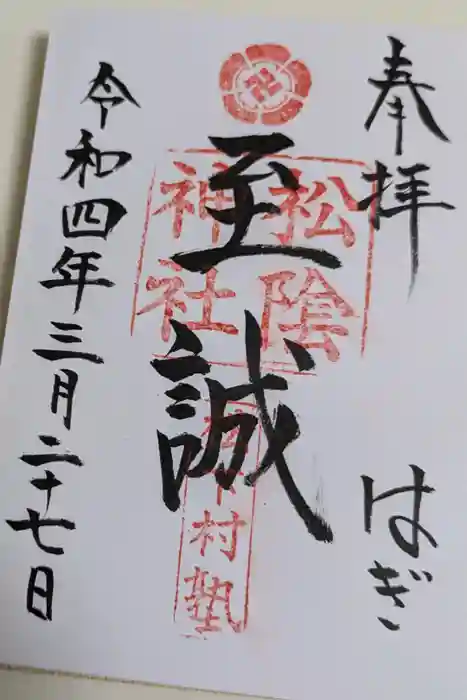 奉拝
はぎ
至誠
松陰
神社
松下村塾
令和四年三月二十七日